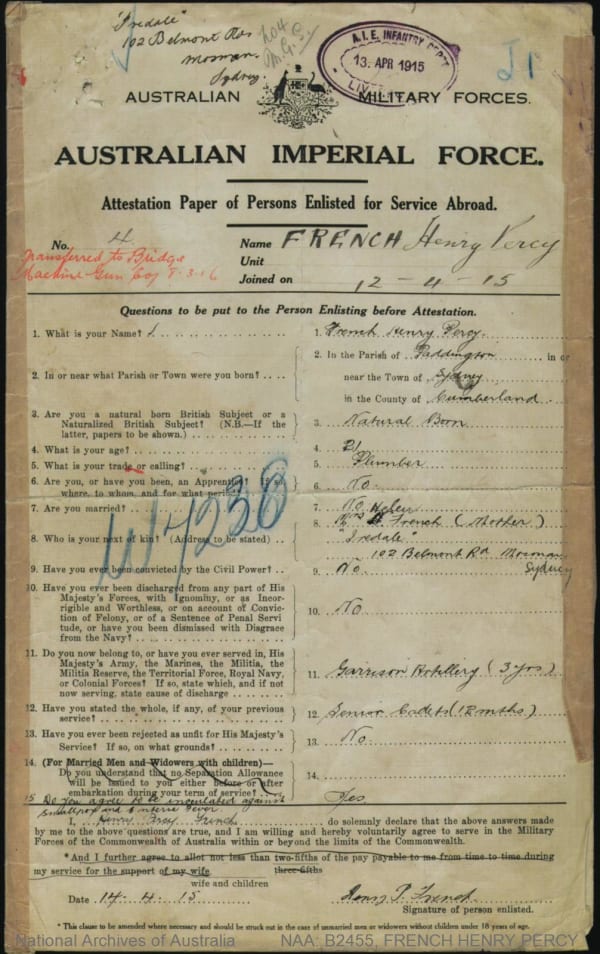 "Iredale"
102 Belmont Rd
Mosman
Sydney
204
M.G.S.
A.I.F. INFANTRY DEPT
13. APR 1915
LIV
J1
AUSTRALIAN MILITARY FORCES.
AUSTRALIAN IMPERIAL FORCE.
Attestation Paper of Persons Enlisted for Service Abroad.
No. 4
Name FRENCH Henry Percy
Transferred to Bridge
Machine Gun Coy 8.3.16
Unit
Joined on 12-4-15
Questions to be put to the Person Enlisting before Attestation.
1. What is your Name? 1. French Henry Percy.
2. In or near what Parish or Town were you born? 2. In the Parish of Paddington in or
near the Town of Sydney
in the County of Cumberland
3. Are you a natural born British Subject or a
Naturalized British Subject? (N.B.—If the
latter, papers to be shown.) 3. Natural Born
4. What is your age? 4. 21
5. What is your trade or calling? 5. Plumber
6. Are you, or have you been, an Apprentice? If so
where, to whom, and for what period? 6. No.
7. Are you married? 7. No
8. Who is your next of kin? (Address to be stated) 8. Mrs Helen French (Mother)
"Iredale"
102 Belmont Rd Mosman
Sydney
W4230
9. Have you ever been convicted by the Civil Power? 9. No.
10. Have you ever been discharged from any part of His
Majesty's Forces, with Ignominy, or as Incor-
rigible and Worthless, or on account of Convic-
tion of Felony, or of a Sentence of Penal Servi-
tude, or have you been Dismissed with Disgrace
from the Navy? 10. No
11. Do you now belong to, or have you ever served in, His
Majesty's Army, the Marines, the Militia, the
Militia Reserve, the Territorial Force, Royal Navy,
or Colonial Forces? If so, state which, and if not
now serving, state cause of discharge 11. Garrison Artillery (3 yrs)
12. Have you stated the whole, if any, of your previous
service? 12. Senior Cadets (12 mths)
13. Have you ever been rejected as unfit for His Majesty's
Service? If so, on what grounds? 13. No.
14. (For Married Men and Widowers with children)—
Do you understand that no Separation Allowance
will be issued to you either before or after
embarkation during your term of service? 14.
15 Do you agree to be inoculated against
smallpox and enteric fever Yes
I, Henry Percy French do solemnly declare that the above answers made
by me to the above questions are true, and I am willing and hereby voluntarily agree to serve in the Military
Forces of the Commonwealth of Australia within or beyond the limits of the Commonwealth.
*And I further agree to allot not less than two-fifths of the pay payable to me from time to time during
three-fifths
my service for the support of my wife
wife and children
Date 14.4.15 Henry P. French
Signature of person enlisted.
* This clause to be amended where necessary and should be struck out in the case of unmarried men or widowers without children under 18 years of age.
National Archives of Australia NAA: B2455, FRENCH HENRY PERCY